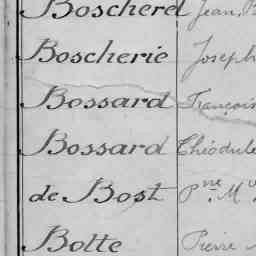 Boscherel Jean,
Boscherie Joseph
Bossard François
Bossard Théodule
de Bost Pne
Botte Pierre